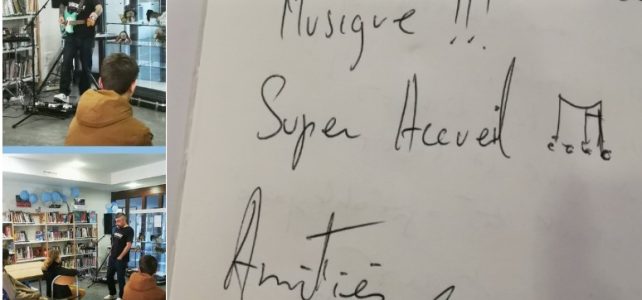 Musique !!!
Super Accueil
Amitiés